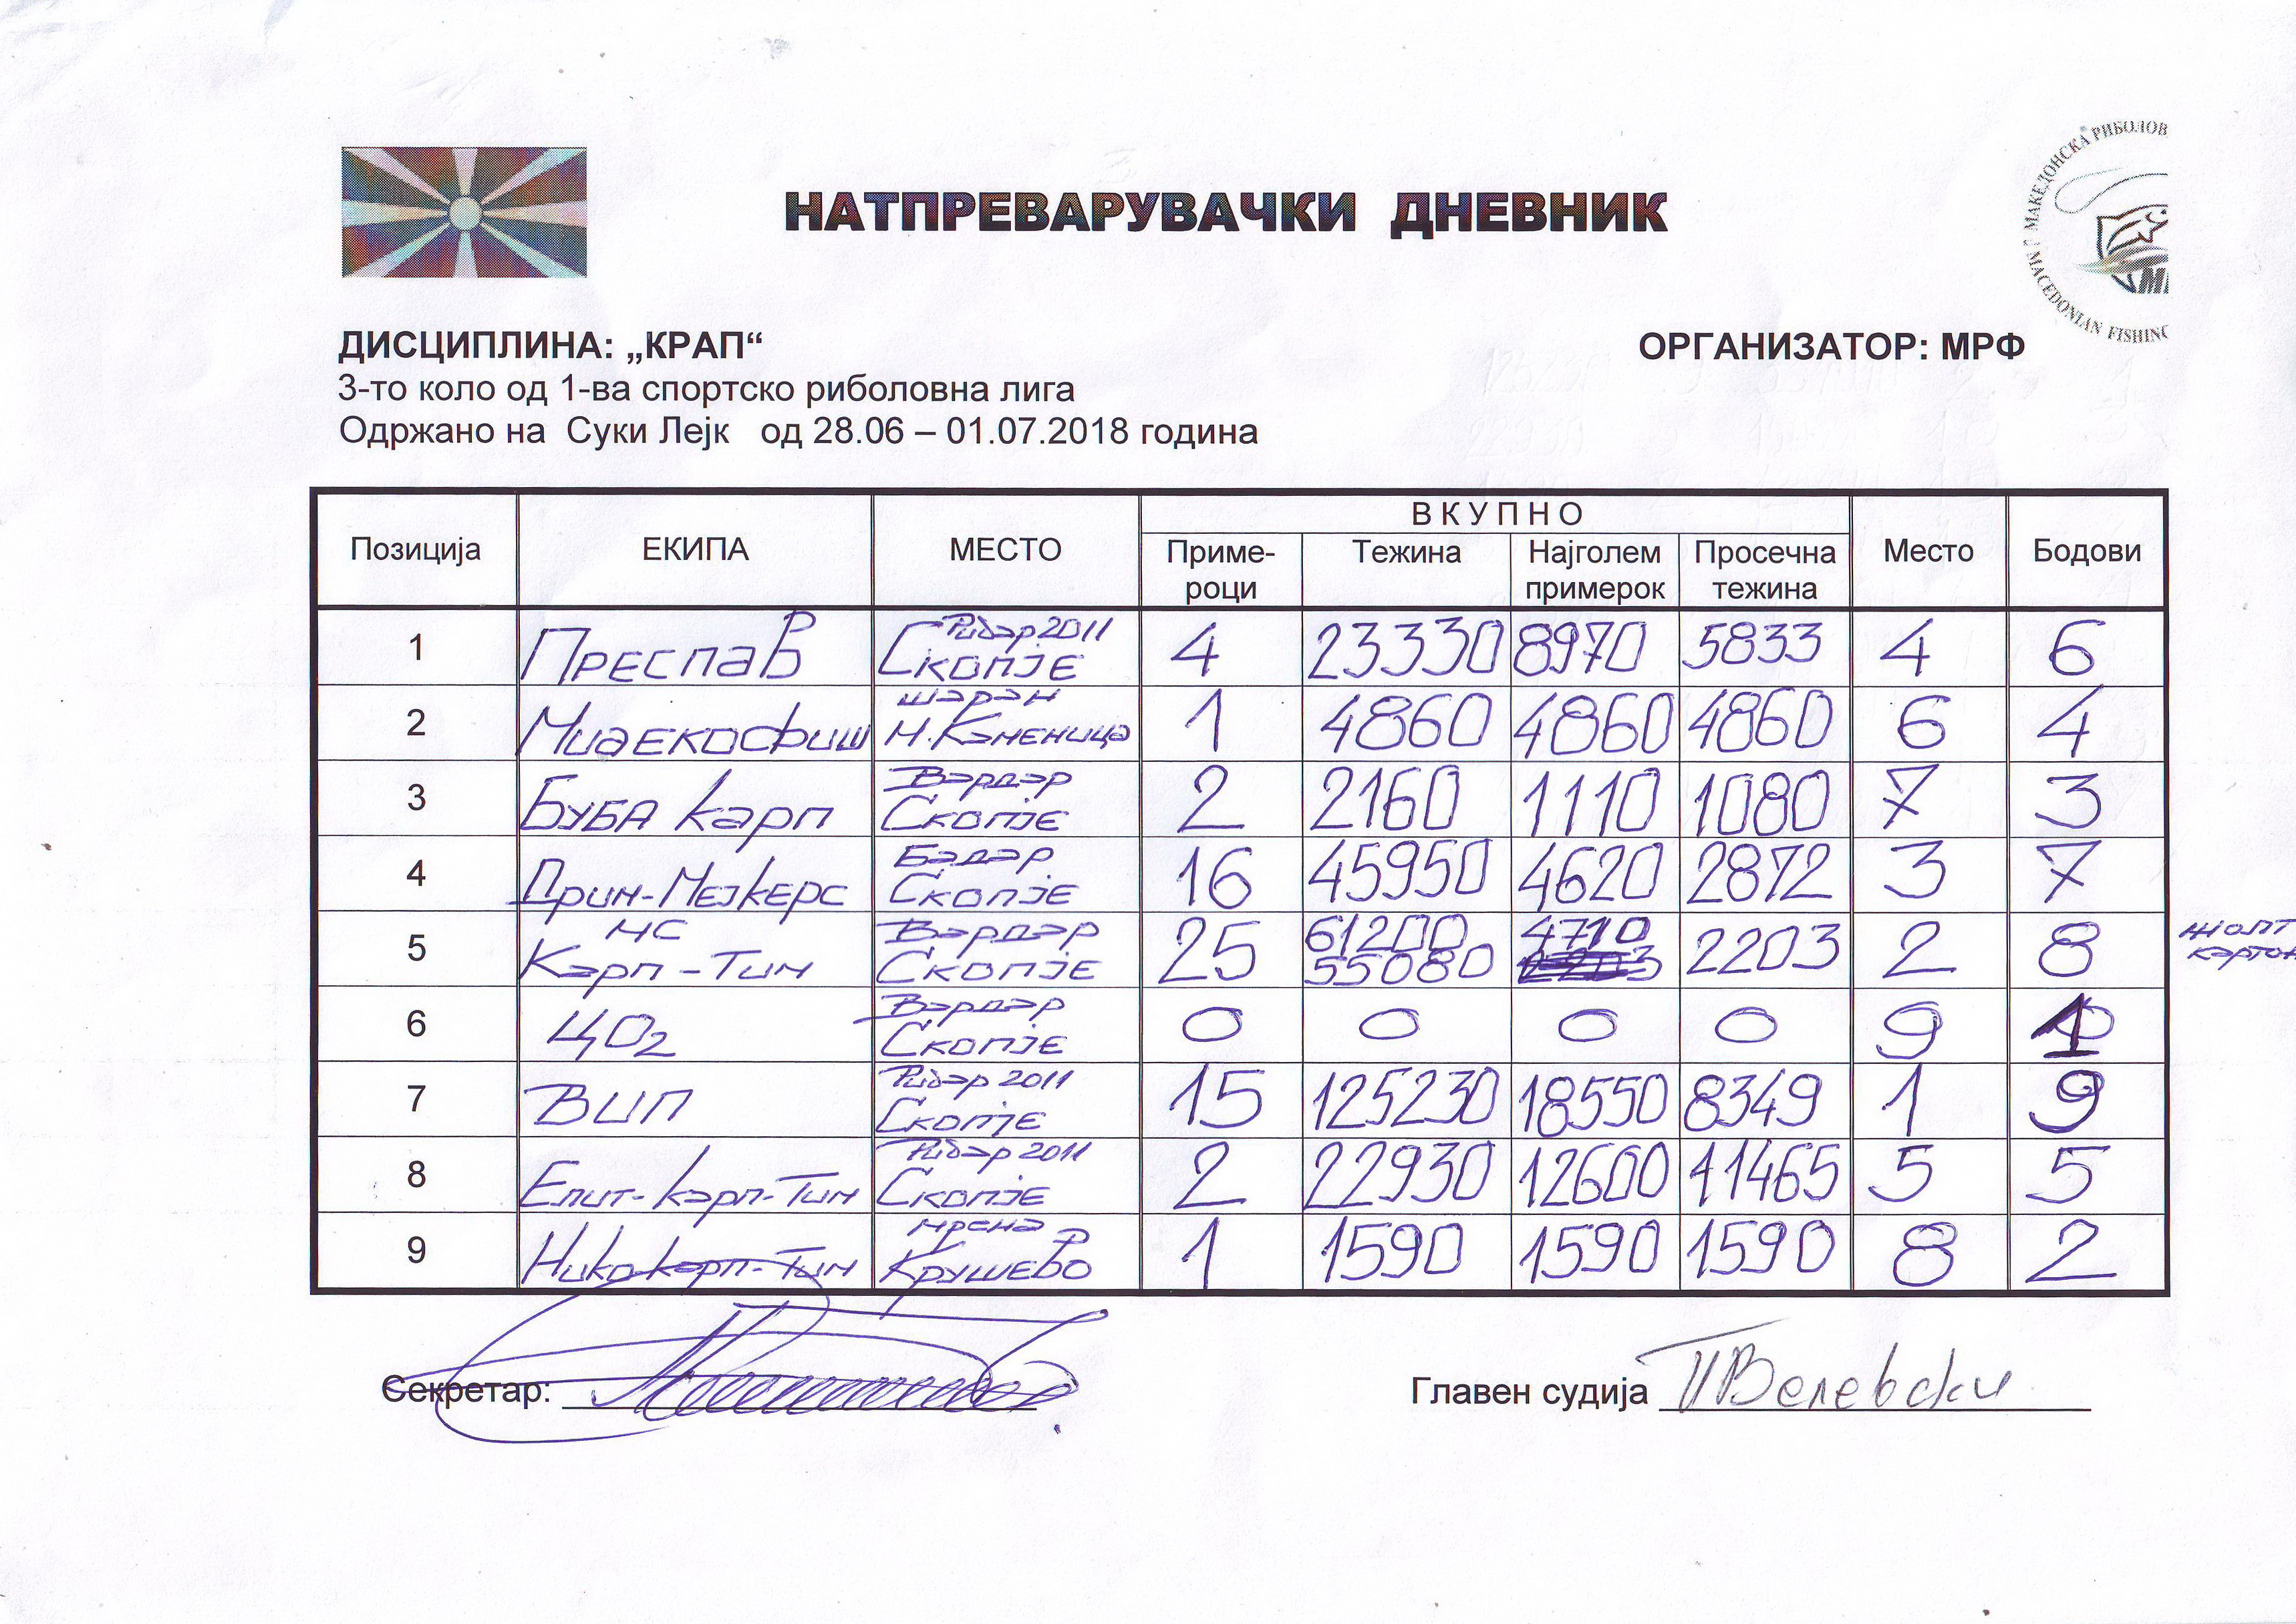 НАТПРЕВАРУВАЧКИ ДНЕВНИК
МАКЕДОНСКА РИБОЛОВ
MACEDONIAN FISHING
ДИСЦИПЛИНА: „КРАП“ ОРГАНИЗАТОР: МРФ
3-то коло од 1-ва спортско риболовна лига
Одржано на Суки Лејк од 28.06 – 01.07.2018 година
В К У П Н О
Позиција ЕКИПА МЕСТО Приме-роци Тежина Најголем примерок Просечна тежина Место Бодови
1 Преспав Рибар 2011 Скопје 4 23330 8970 5833 4 6
2 Мидекофиш шаран М.Каменица 1 4860 4860 4860 6 4
3 Буба карп Вардар Скопје 2 2160 1110 1080 7 3
4 Дрин-Мејкерс Бадар Скопје 16 45950 4620 2872 3 7
5 МС Карп-Тим Вардар Скопје 25 61200 55080 4710 2203 2 8 жолт картон
6 ЦО2 Вардар Скопје 0 0 0 0 9 1
7 ВИП Рибар 2011 Скопје 15 125230 18550 8349 1 9
8 Елит-карп-Тим Рибар 2011 Скопје 2 22930 12600 11465 5 5
9 Нико-карп-Тим мрена Крушево 1 1590 1590 1590 8 2
Секретар: Главен судија ПВелевски